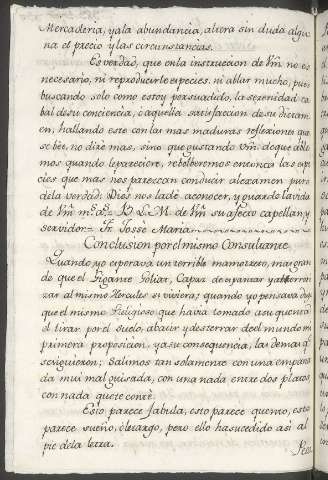 Mercaderia, yala abundancia, altera sin duda algu-
na el precio y las circunstancias.
Es verdad, que en la instruccion de Vm̃. no es
necesario, ni reproducirle especies. ni ablar mucho, pues
buscando solo como estoy persuadido, la serenidad ca-
bal de su conciencia, ó aquella satisfaccion de su dictam-
en, hallando este con las mas maduras reflexiones que
se vèè, no dire mas, sino que gustando Vm̃. de que àble-
mos quando le pareciere, rebolberemos encinas las espe-
cies que mas nos parezcan conducir al examen puro
dela verdad: Dios nos la dè à conocer, y guarde la vida
de Vm̃ m.s a.s = B. L. M. de Vm̃ su afecto capellan, y
servidor = Fr. Josse Maria
Conclusion por el mismo Consultante.
Quando yo esperava un torrible mamotreto, mas gran-
de que el Gigante Goliat, Capaz de espantar y aterrori-
zar al mismo Hercules si viviera; quando yo pensava
que el mismo Religiosso que havia tomado a su quenta
el tirar por el suelo, abatir y desterrar de el mundo mi
primera proposicion, y a su consequencia, las demas q.e
se siguieron; Salimos tan solamente con una empana-
da mui mal guisada, con una nada entre dos platos
con nada que te conté.
Esto parece fabula, esto parece quento, esto
parece sueño, ó letargo, pero ello ha sucedido asi al
pie dela letra.